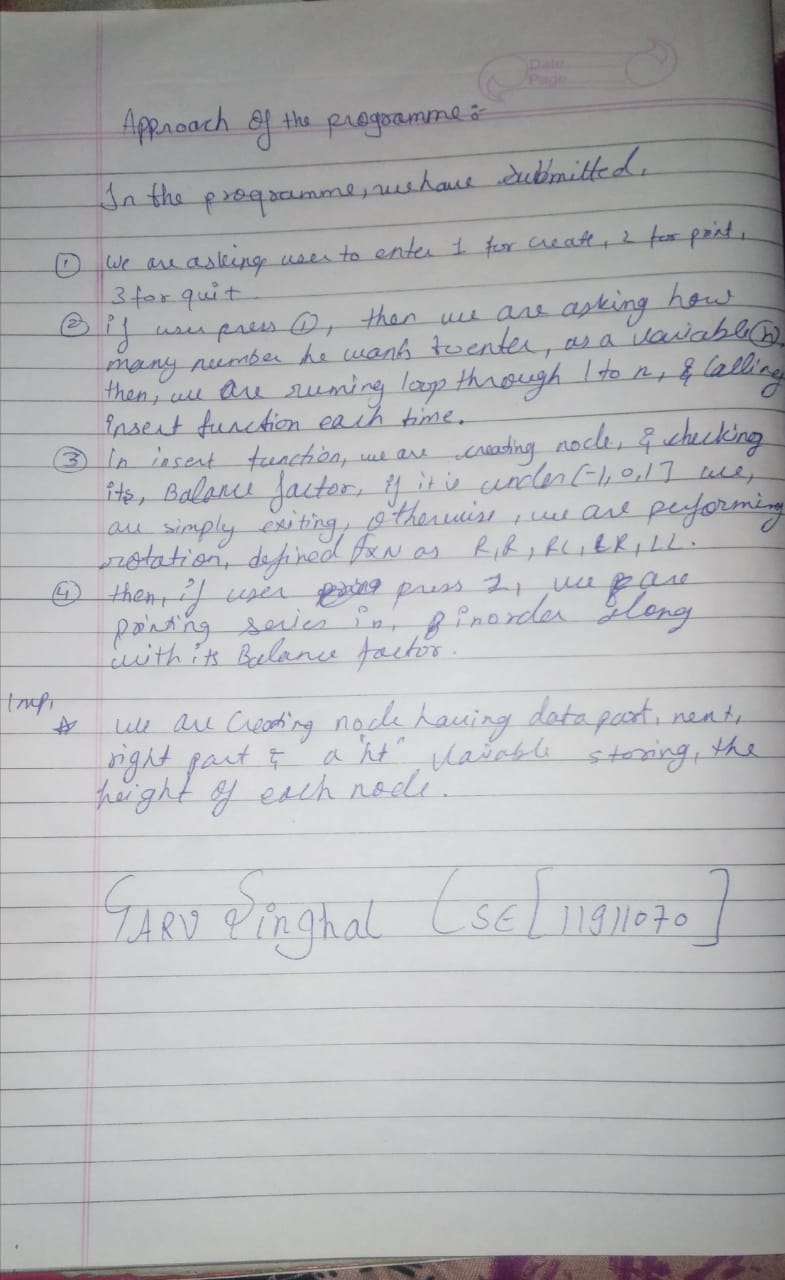 Date
Page
Approach of the programme :-
In the programme, we have submitted.
① We are asking user to enter 1 for create, 2 for print,
3 for quit.
② if user press ①, then we are asking how
many number he wants to enter, as a variable (n).
then, we are running loop through 1 to n, & Calling
insert function each time.
③ In insert function, we are creating node, & checking
its, Balance factor, if it is under (-1, 0, 1] we,
are simply exiting, Otherwise, we are performing
rotation, defined fxN as R,R, RL, LR, LL.
④ then, if user press 2, we are
printing series in, inorder along
with its Balance factor.
Imp,
☆ we are Creating node having data part, next,
right part & a "ht" Variable storing, the
height of each node.
GARV Singhal CSE [11911070]